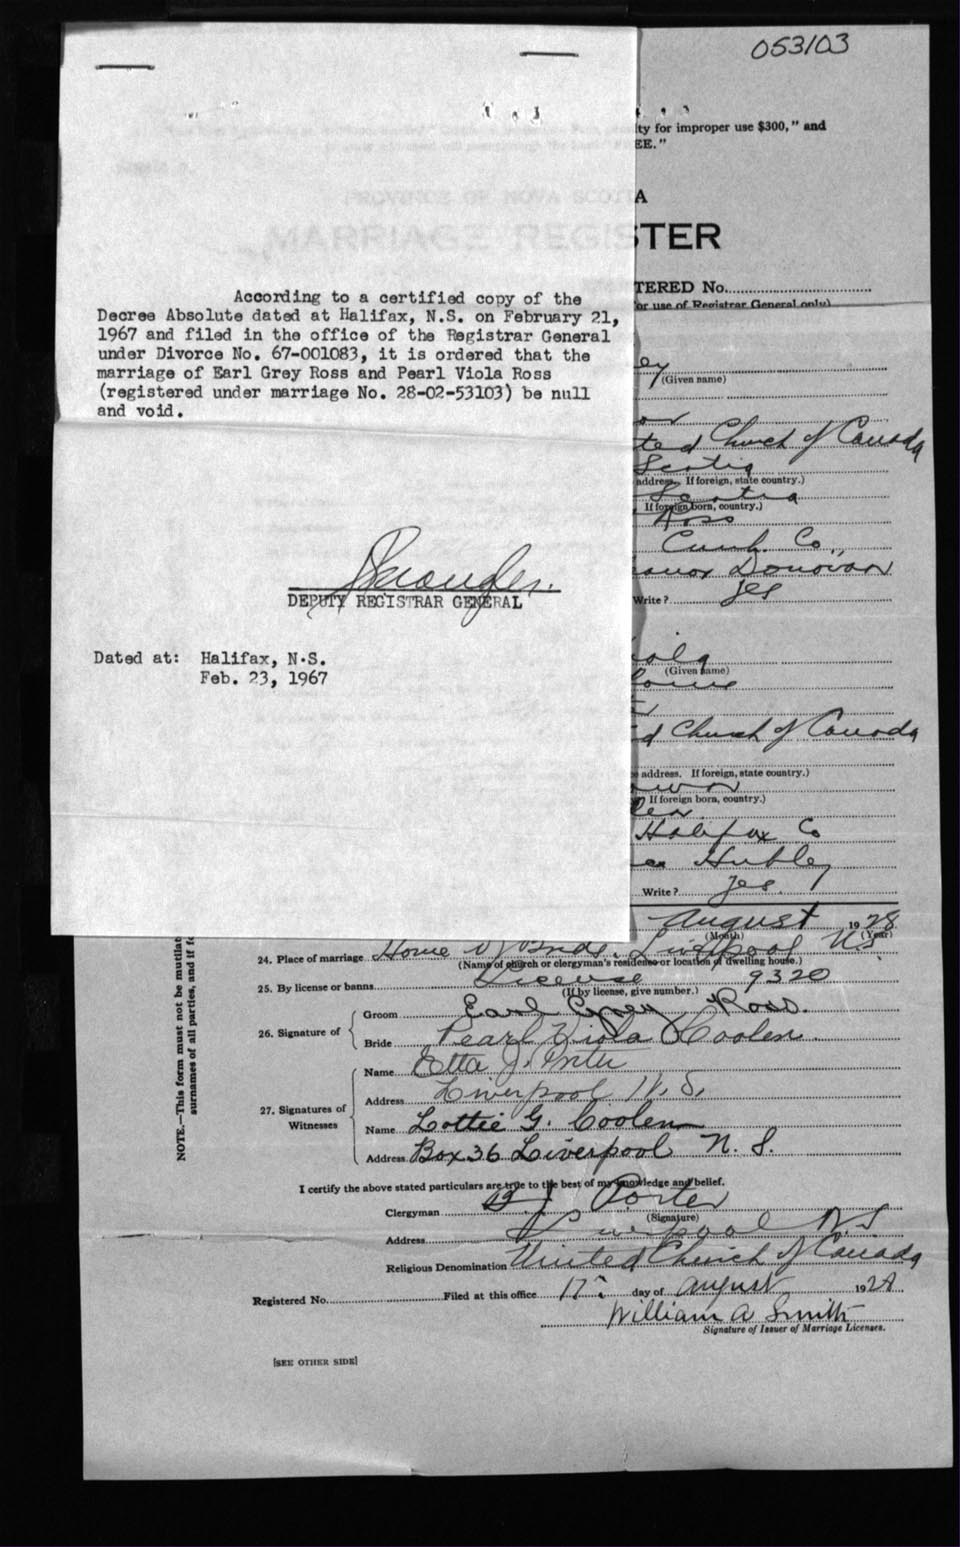 053103
ty for improper use $300," and
EE."
A
PROVINCE OF NOVA SCOTI
MARRIAGE REGISTER
TERED No.
or use of Registrar General only)
According to a certified copy of the
Decree Absolute dated at Halifax, N.S. on February 21,
1967 and filed in the office of the Registrar General
under Divorce No. 67-001083, it is ordered that the
marriage of Earl Grey Ross and Pearl Viola Ross
(registered under marriage No. 28-02-53103) be null
and void.
DEPUTY REGISTRAR GENERAL
Dated at: Halifax, N.S.
Feb. 23, 1967
ey
(Given name)
or
ted Church of Canada
Scotia
address. If foreign, state country.)
Scotia
If foreign born, country.)
Ross
Cumb. Co.,
anor Donovan
Write? Yes
iola
(Given name)
d Church of Canada
address. If foreign, state country.)
If foreign born, country.)
len
Halifax Co
Hubley
Write? Yes.
August 1928
(Month) (Year)
24. Place of marriage Home of Bride, Liverpool N.S.
(Name of church or clergyman's residence or location of dwelling house.)
25. By license or banns License 9320
(If by license, give number.)
26. Signature of
Groom Earl Grey Ross.
Bride Pearl Viola Coolen
27. Signatures of Witnesses
Name Etta J. Porter
Address Liverpool N. S.
Name Lottie G. Coolen
Address Box 36 Liverpool N. S.
I certify the above stated particulars are true to the best of my knowledge and belief.
Clergyman Porter
(Signature)
Address Liverpool N S
Religious Denomination United Church of Canada
Registered No. Filed at this office 17 day of August 1928
William A Smith
Signature of Issuer of Marriage Licenses.
[SEE OTHER SIDE]
NOTE.—This form must not be mutilat
surnames of all parties, and if fo